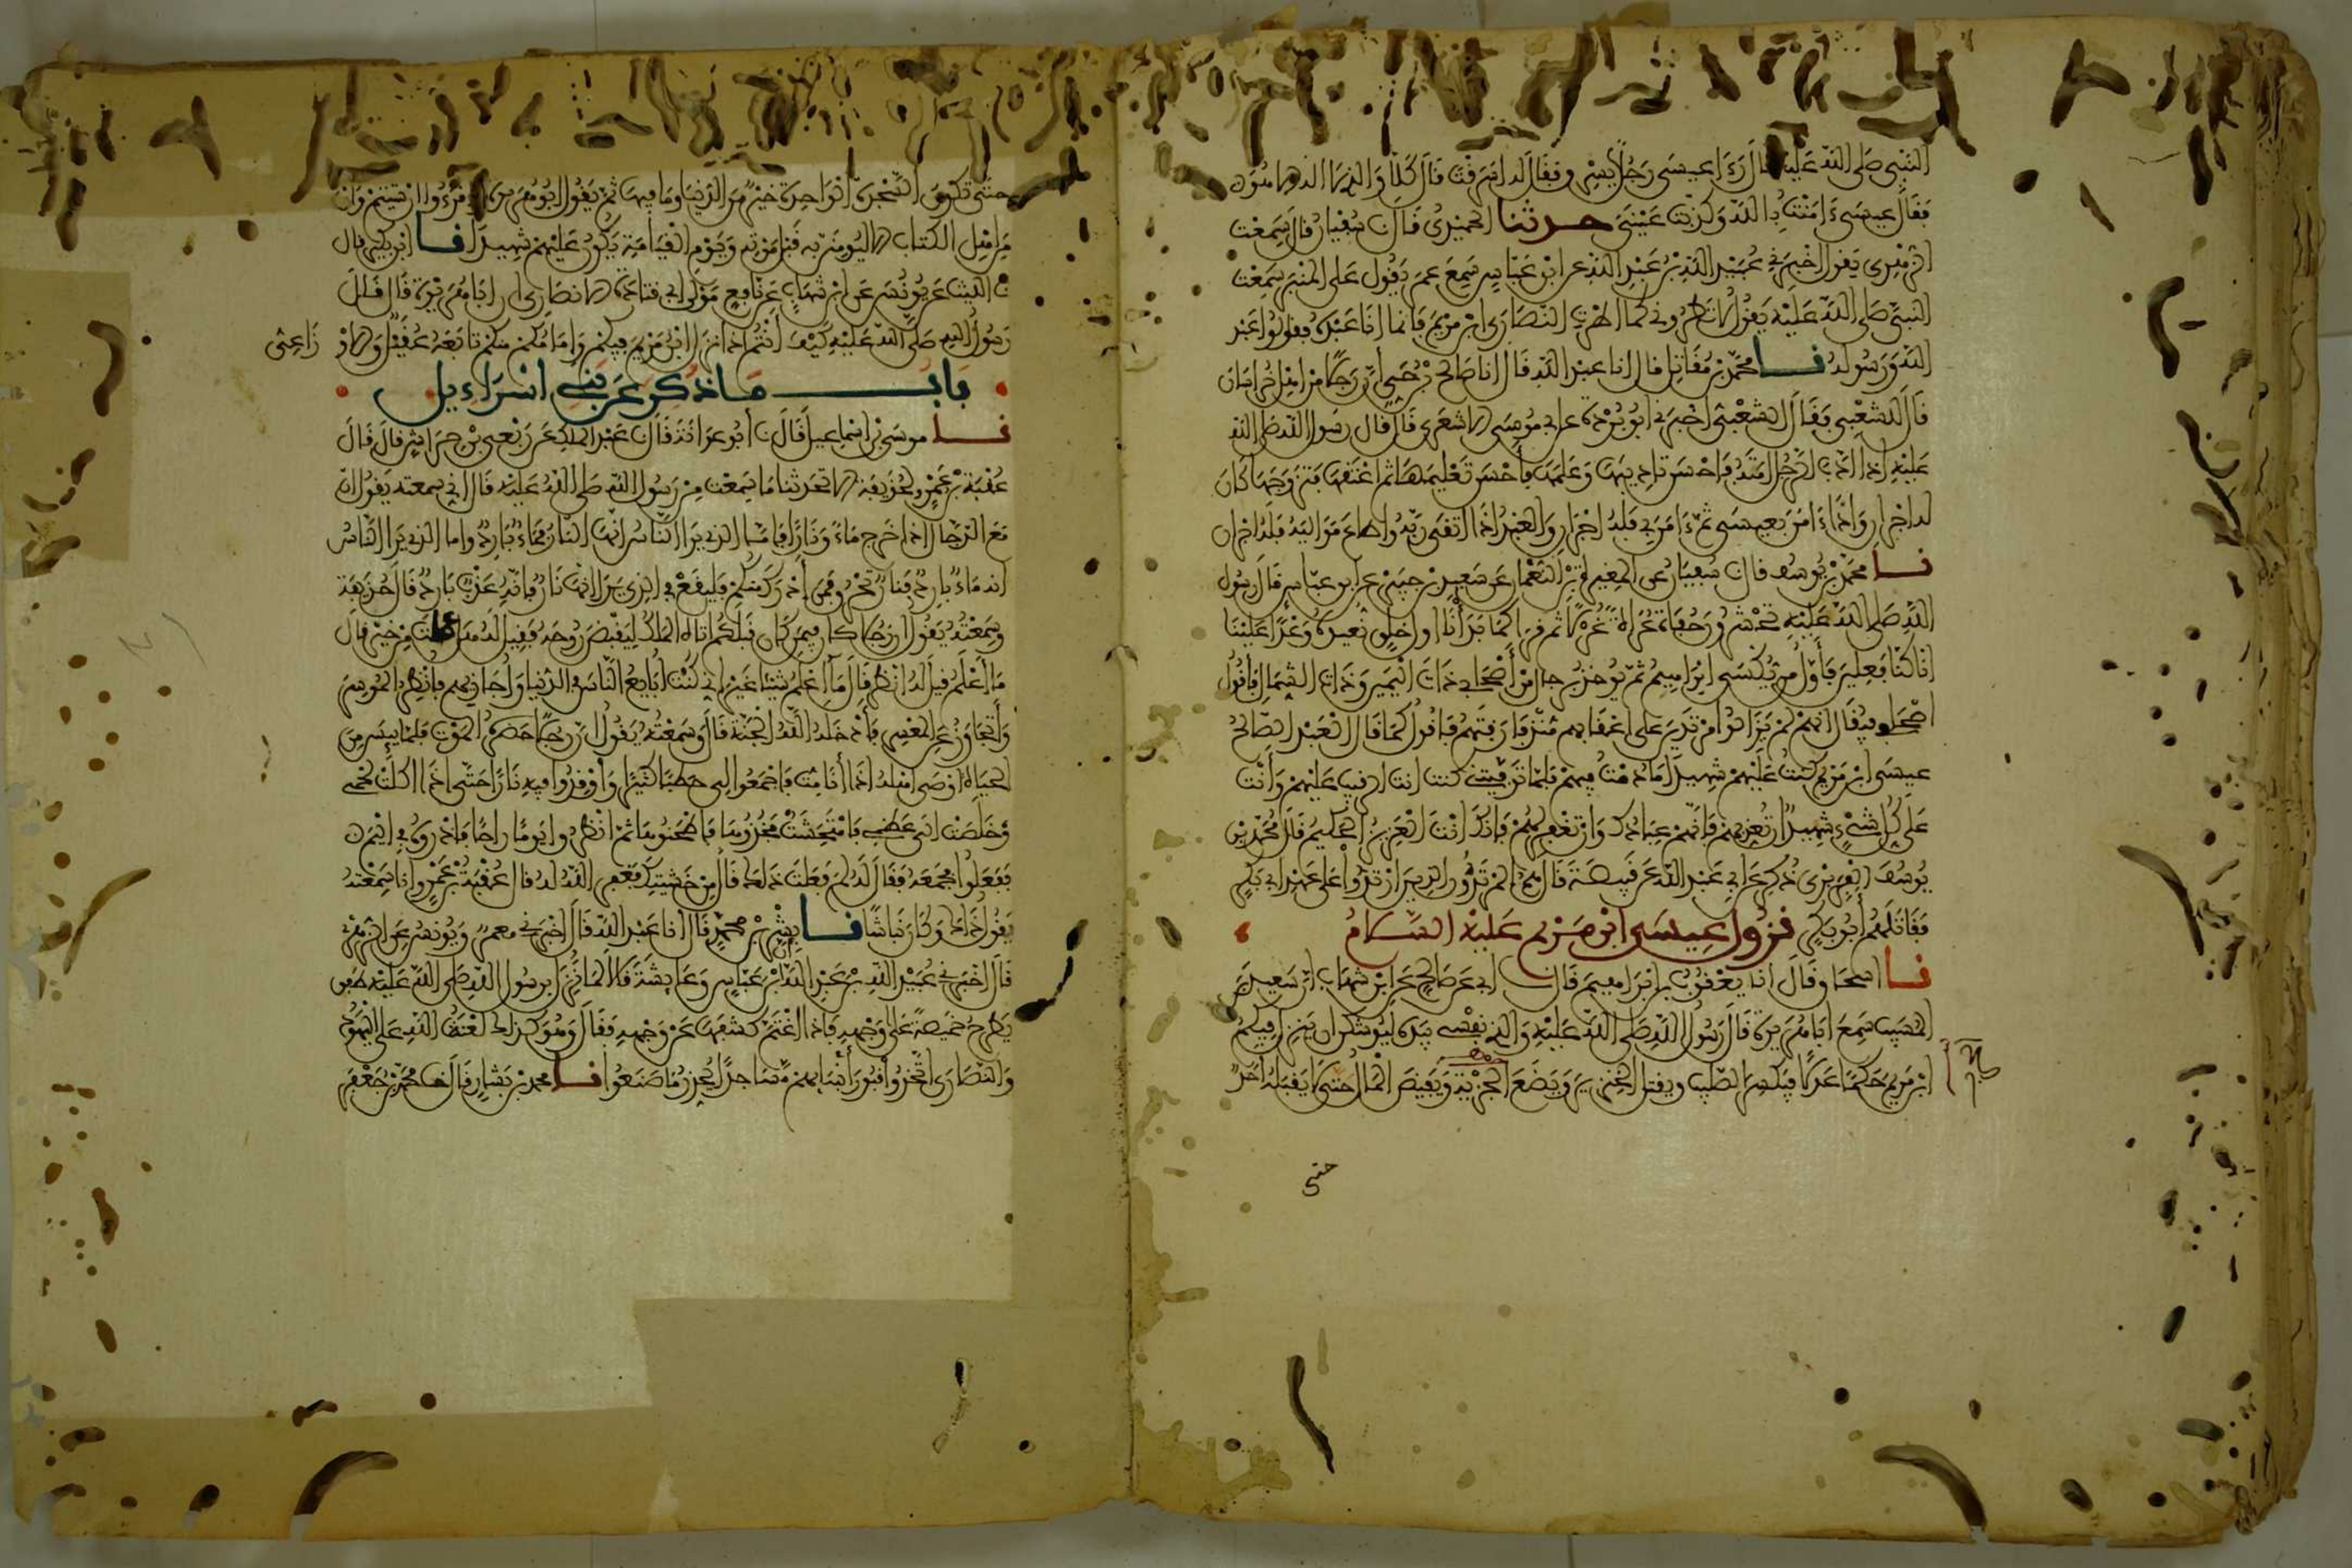 النبي صلى الله عليه قال رءا عيسى رجلا يسرق فقال له اسرقت قال كلا والذي لا اله الا هو
فقال عيسى ءامنت بالله وكذبت عيني حدثنا الحميدي قال نا سفيان قال سمعت
الزهري يقول اخبرني عبيد الله بن عبد الله عن ابن عباس سمع عمر يقول على المنبر سمعت
النبي صلى الله عليه يقول لا تطروني كما اطرت النصارى ابن مريم فانما انا عبده فقولوا عبد
الله ورسوله نا محمد بن مقاتل قال انا عبد الله قال انا صالح بن حي ان رجلا من اهل خراسان
قال للشعبي فقال الشعبي اخبرني ابو بردة عن ابي موسى الاشعري قال قال رسول الله صلى الله
عليه اذا ادب الرجل امته فاحسن تاديبها وعلمها فاحسن تعليمها ثم اعتقها فتزوجها كان
له اجران واذا ءامن بعيسى ثم ءامن بي فله اجران والعبد اذا اتقى ربه واطاع مواليه فله اجران
نا محمد بن يوسف قال نا سفيان عن المغيرة بن النعمان عن سعيد بن جبير عن ابن عباس قال رسول
الله صلى الله عليه تحشرون حفاة عراة غرلا ثم قرا كما بدأنا اول خلق نعيده وعدا علينا
انا كنا فعلين فأول من يكسى ابراهيم ثم يوخذ برجال من أصحابي ذات اليمين وذات الشمال فأقول
اصحابي فيقال انهم لم يزالوا مرتدين على اعقابهم منذ فارقتهم فاقول كما قال العبد الصالح
عيسى ابن مريم كنت عليهم شهيدا ما دمت فيهم فلما توفيتني كنت انت الرقيب عليهم وأنت
على كل شيء شهيد ان تعذبهم فانهم عبادك وان تغفر لهم فانك انت العزيز الحكيم قال محمد بن
يوسف الفربري ذكر عن ابي عبد الله عن قبيصة قال هم المرتدون الذين ارتدوا على عهد ابي بكر
فقاتلهم أبو بكر نزول عيسى ابن مريم عليه السلام
نا اسحاق قال انا يعقوب بن ابراهيم قال نا ابي عن صالح عن ابن شهاب ان سعيد بن
المسيب سمع ابا هريرة قال رسول الله صلى الله عليه والذي نفسي بيده ليوشكن ان ينزل فيكم
ابن مريم حكما عدلا فيكسر الصليب ويقتل الخنزير ويضع الجزية ويفيض المال حتى لا يقبله احد
حتى
حتى تكون السجدة الواحدة خير من الدنيا وما فيها ثم يقول ابو هريرة اقرءوا ان شيتم وان
من اهل الكتاب الا ليومنن به قبل موته ويوم القيامة يكون عليهم شهيدا نا ابن بكير قال
نا الليث عن يونس عن ابن شهاب عن نافع مولى ابي قتادة الانصاري ان ابا هريرة قال قال
رسول الله صلى الله عليه كيف أنتم اذا نزل ابن مريم فيكم وامامكم منكم تابعه عقيل والاوزاعي
باب ما ذكر عن بني اسراءيل
نا موسى بن اسماعيل قال نا أبو عوانة قال نا عبد الملك عن ربعي بن حراش قال قال
عقبة بن عمرو لحذيفة الا تحدثنا ما سمعت من رسول الله صلى الله عليه قال اني سمعته يقول ان
مع الدجال اذا خرج ماء ونارا فاما الذي يرا الناس انها النار فماء بارد واما الذي يرا الناس
انه ماء بارد فنار تحرق فمن أدرك منكم فليقع في الذي يرا انها نار فانه عذب بارد قال حذيفة
وسمعته يقول ان رجلا كان فيمن كان قبلكم اتاه الملك ليقبض روحه فقيل له هل عملت من خير قال
ما أعلم قيل له انظر قال ما اعلم شيئا غير اني كنت ابايع الناس في الدنيا واجازيهم فانظر الموسر
وأتجاوز عن المعسر فأدخله الله الجنة قال وسمعته يقول ان رجلا حضره الموت فلما يئس من
الحياة اوصى اهله اذا أنا مت فاجمعوا لي حطبا كثيرا وأوقدوا فيه نارا حتى اذا اكلت لحمي
وخلصت الى عظمي فامتحشت فخذوها فاطحنوها ثم انظروا يوما راحا فاذروه في اليم
ففعلوا فجمعه فقال له لم فعلت ذلك قال من خشيتك فغفر الله له قال عقبة بن عمرو انا سمعته
يقول ذاك وكان نباشا نا بشر بن محمد قال انا عبد الله قال اخبرني معمر ويونس عن الزهري
قال اخبرني عبيد الله بن عبد الله ان ابن عباس وعايشة قالا لما نزل برسول الله صلى الله عليه طفق
يطرح خميصة على وجهه فاذا اغتم كشفها عن وجهه فقال وهو كذلك لعنة الله على اليهود
والنصارى اتخذوا قبور أنبيائهم مساجد يحذر ما صنعوا نا محمد بن بشار قال نا محمد بن جعفر